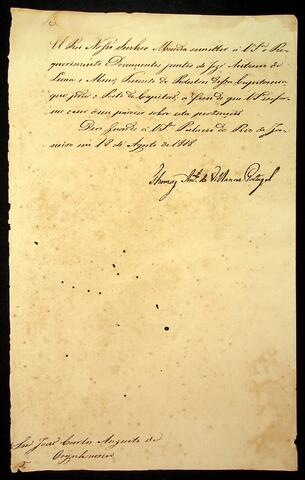 El Rei Nosso Senhor Manda remetter a V.S.ª o Re-
querimento e Documentos juntos de José Antonio de
Lima e Abreu, Tenente de dessa Capitania
que pede o Posto de Capitão, a fim de que V.S.ª infor-
me com o seu parecer sobre esta pertenção
Deos Guarde a V.S.ª Palacio do Rio de Ja-
neiro em 18 de Agosto de 1818
Thomaz Ant.º de Villanova Portugal
Snr. João Carlos Augusto de
Oeynhausen